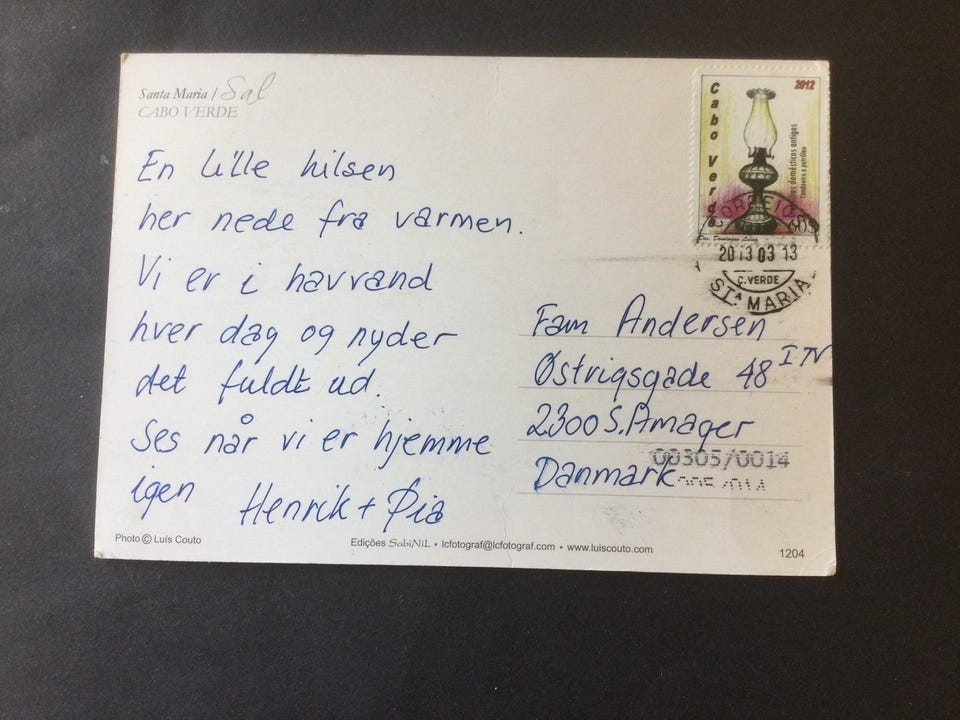 Santa Maria / Sal
CABO VERDE
En lille hilsen
her nede fra varmen.
Vi er i havvand
hver dag og nyder
det fuldt ud.
Ses når vi er hjemme
igen
Henrik + Pia
Cabo Verde
2012
domésticos antigos
Candeeiro a petróleo
Dra. Domingas Luisa
CORREIOS
2013 03 13
C. VERDE
STA MARIA
Fam Andersen
Østrigsgade 48 I TV
2300 S. Amager
Danmark
00305/0014
Photo © Luís Couto
Edições SabiNiL • lcfotograf@lcfotograf.com • www.luiscouto.com
1204